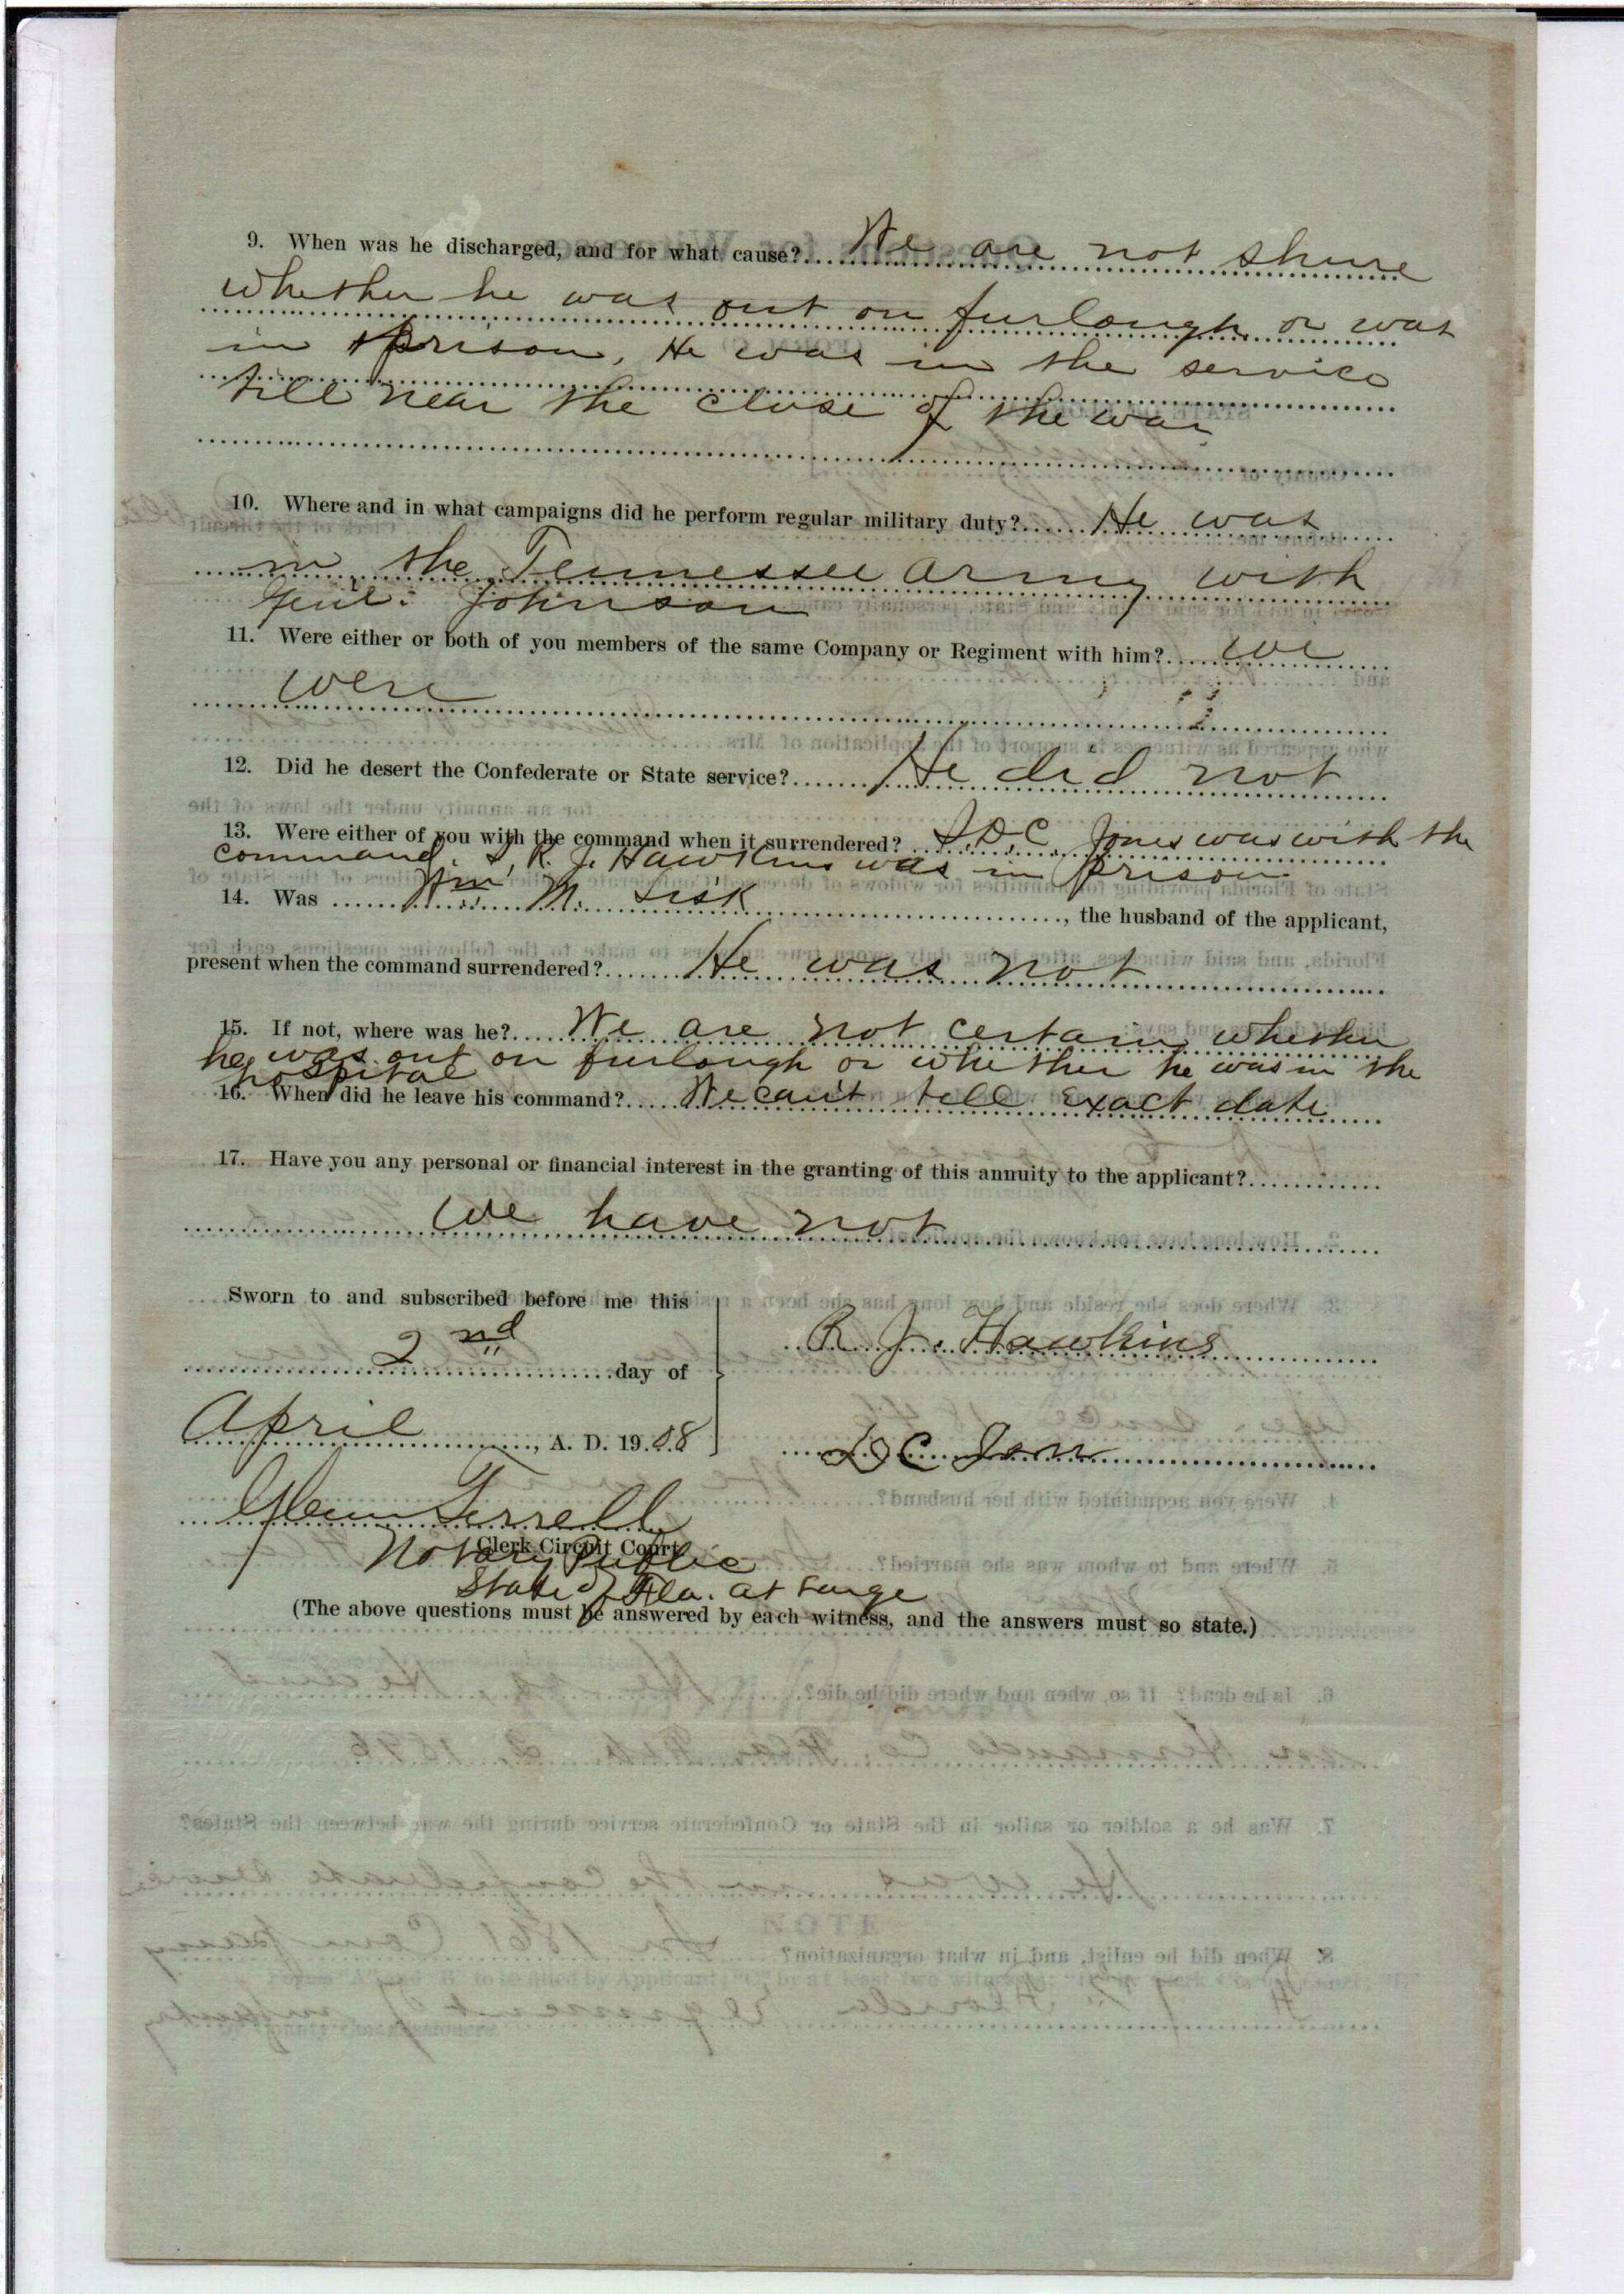 9. When was he discharged, and for what cause? We are not shure
whether he was out on furlough or was
in prison. He was in the service
till near the close of the war
10. Where and in what campaigns did he perform regular military duty? He was
in the Tennessee army with
Genl. Johnson
11. Were either or both of you members of the same Company or Regiment with him? we
were
12. Did he desert the Confederate or State service? He did not
13. Were either of you with the command when it surrendered? I D.C. Jones was with the
command. I, R. J. Hawkins was in prison
14. Was Wm. M. Lisk, the husband of the applicant,
present when the command surrendered? He was not
15. If not, where was he? We are not certain whether
he was out on furlough or whether he was in the
hospital
16. When did he leave his command? We can't tell exact date
17. Have you any personal or financial interest in the granting of this annuity to the applicant?
we have not
Sworn to and subscribed before me this
2nd day of
April, A. D. 1908
R. J. Hawkins
D C Jon
Glenn Terrell
Clerk Circuit Court
Notary Public
State of Fla. at Large
(The above questions must be answered by each witness, and the answers must so state.)